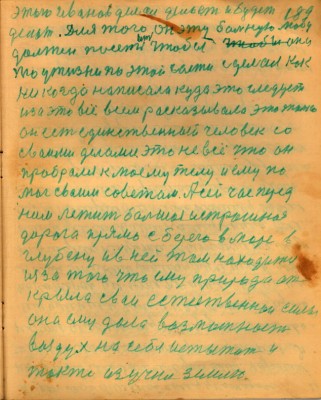 этого Иванов делал делает и будет 189
делат. Для того он эту болную
должен посетит чтобы она
мои жизни по этой части сделал как
на когда написала куда это следует
из за это всё всем расказывала это только
он ест единственный человек со
своими делами это не всё что он
пробрался к моему телу и ему по
мог своим советам. А сейчас перед
ним лежит болшая и страшная
дорога прямо с берега в море в
глубену и в ней там находится
из за того что ему природа от
крыла свои естественной силы
она ему дала возможност
воздух на себя испытат и
также изучил землю.